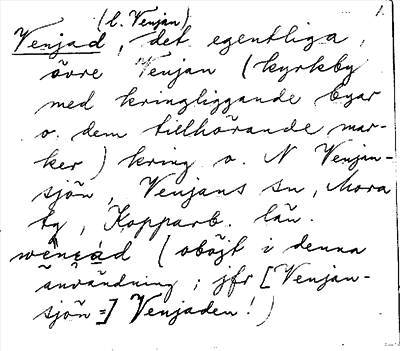 (l. Venjan) 1.
Venjad, det egentliga,
övre Venjan (kyrkby
med kringliggande byar
o. dem tillhörande mar-
ker) kring o. N Venjan-
sjön, Venjans sn, Mora
tg, Kopparb. län.
(oböjt i denna
användning; jfr [Venjan-
sjön =] Venjaden!)